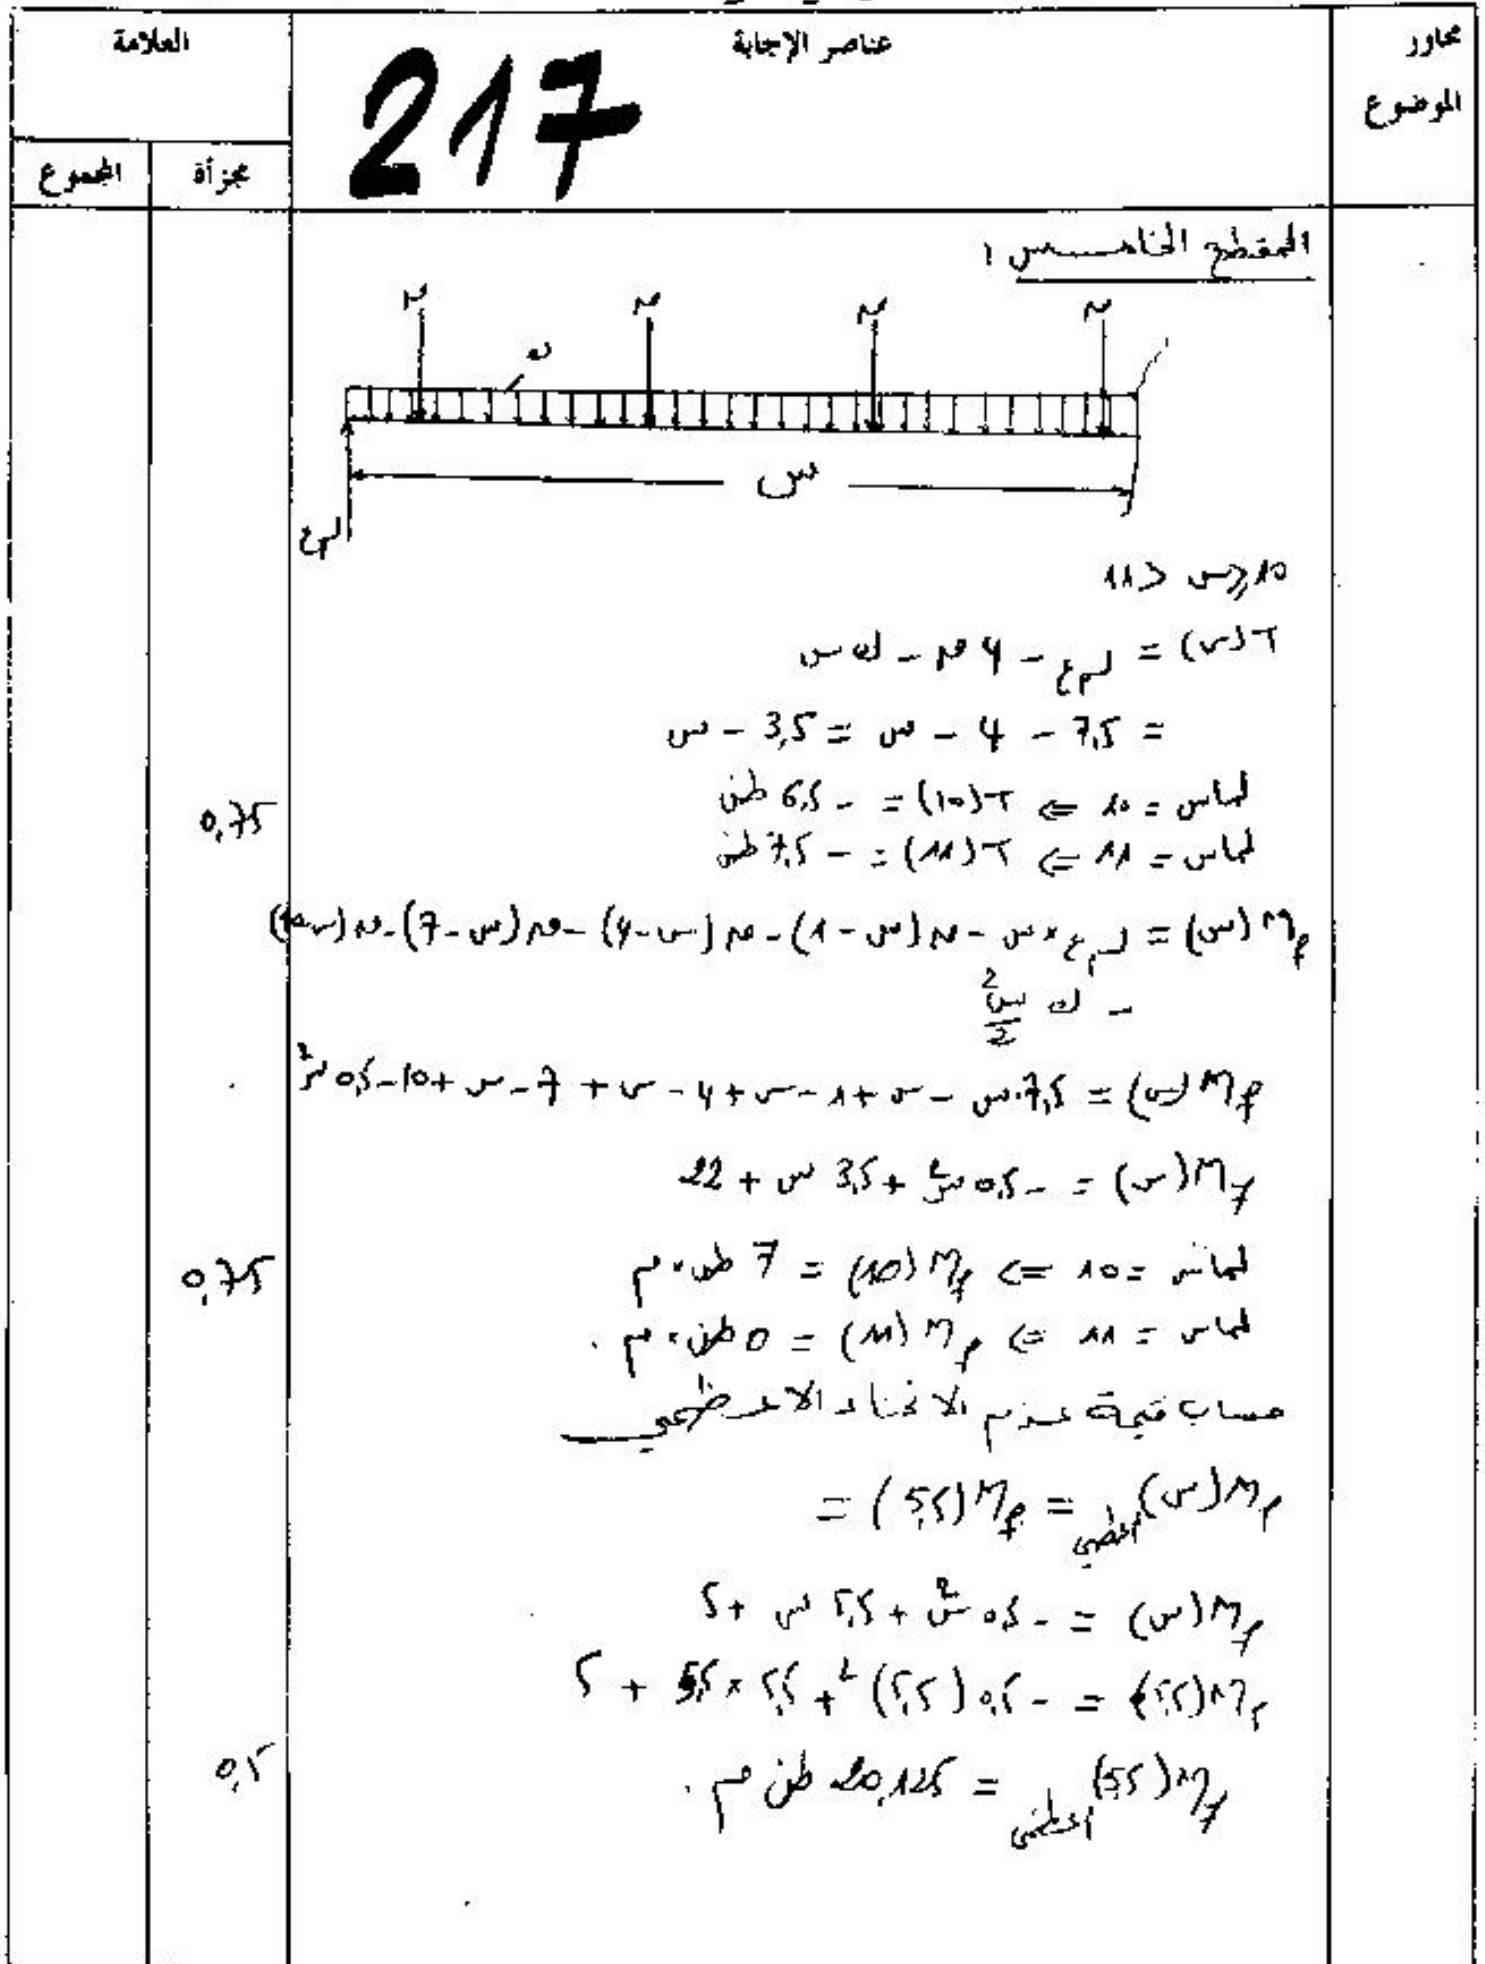 محاور الموضوع
عناصر الإجابة
العلامة
مجزأة
المجموع
217
المقطع الخامس :
ن ن ن ن
ك
س
10 ⩽ س < 11
T(س) = − 4 ن − ك س
= 7,5 − 4 − س = 3,5 − س
لما س = 10 ⇐ T(10) = − 6,5 طن
لما س = 11 ⇐ T(11) = − 7,5 طن
0,75
Mf(س) = × س − ن (س − 1) − ن (س − 4) − ن (س − 7) − ن (س − 10)
− ك س²/2
Mf(س) = 7,5 س − س + 1 − س + 4 − س + 7 − س + 10 − 0,5 س²
Mf(س) = − 0,5 س² + 3,5 س + 22
لما س = 10 ⇐ Mf(10) = 7 طن.م
0,75
لما س = 11 ⇐ Mf(11) = 0 طن.م .
حساب قيمة عزم الانحناء الأعظمي
Mf(س) أعظمي = Mf(5,5) =
Mf(س) = − 0,5 س² + 5,5 س + 5
Mf(5,5) = − 0,5 (5,5)² + 5,5 × 5,5 + 5
Mf(5,5) أعظمي = 20,125 طن م .
0,5